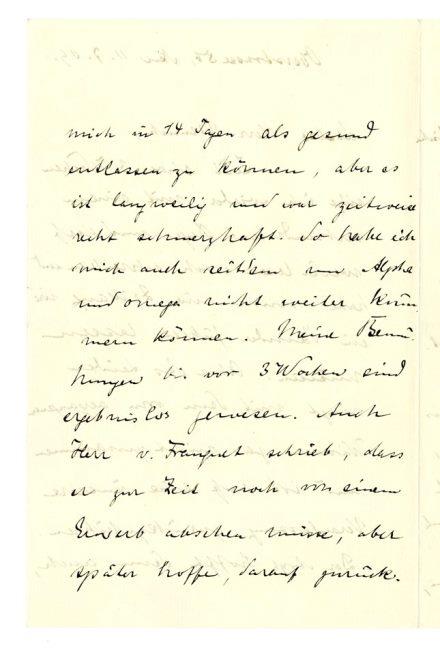 mich in 14 Tagen als gesund
entlassen zu können, aber es
ist langweilig und war zeitweise
recht schmerzhaft. So habe ich
mich auch seitdem um Alpha
und omega nicht weiter küm¬
mern können. Meine Bemü¬
hungen bis vor 3 Wochen sind
ergebnislos gewesen. Auch
Herr v. Franquet schrieb, dass
er zur Zeit noch von einem
Erwerb absehen müsse, aber
später hoffe, darauf zurück-